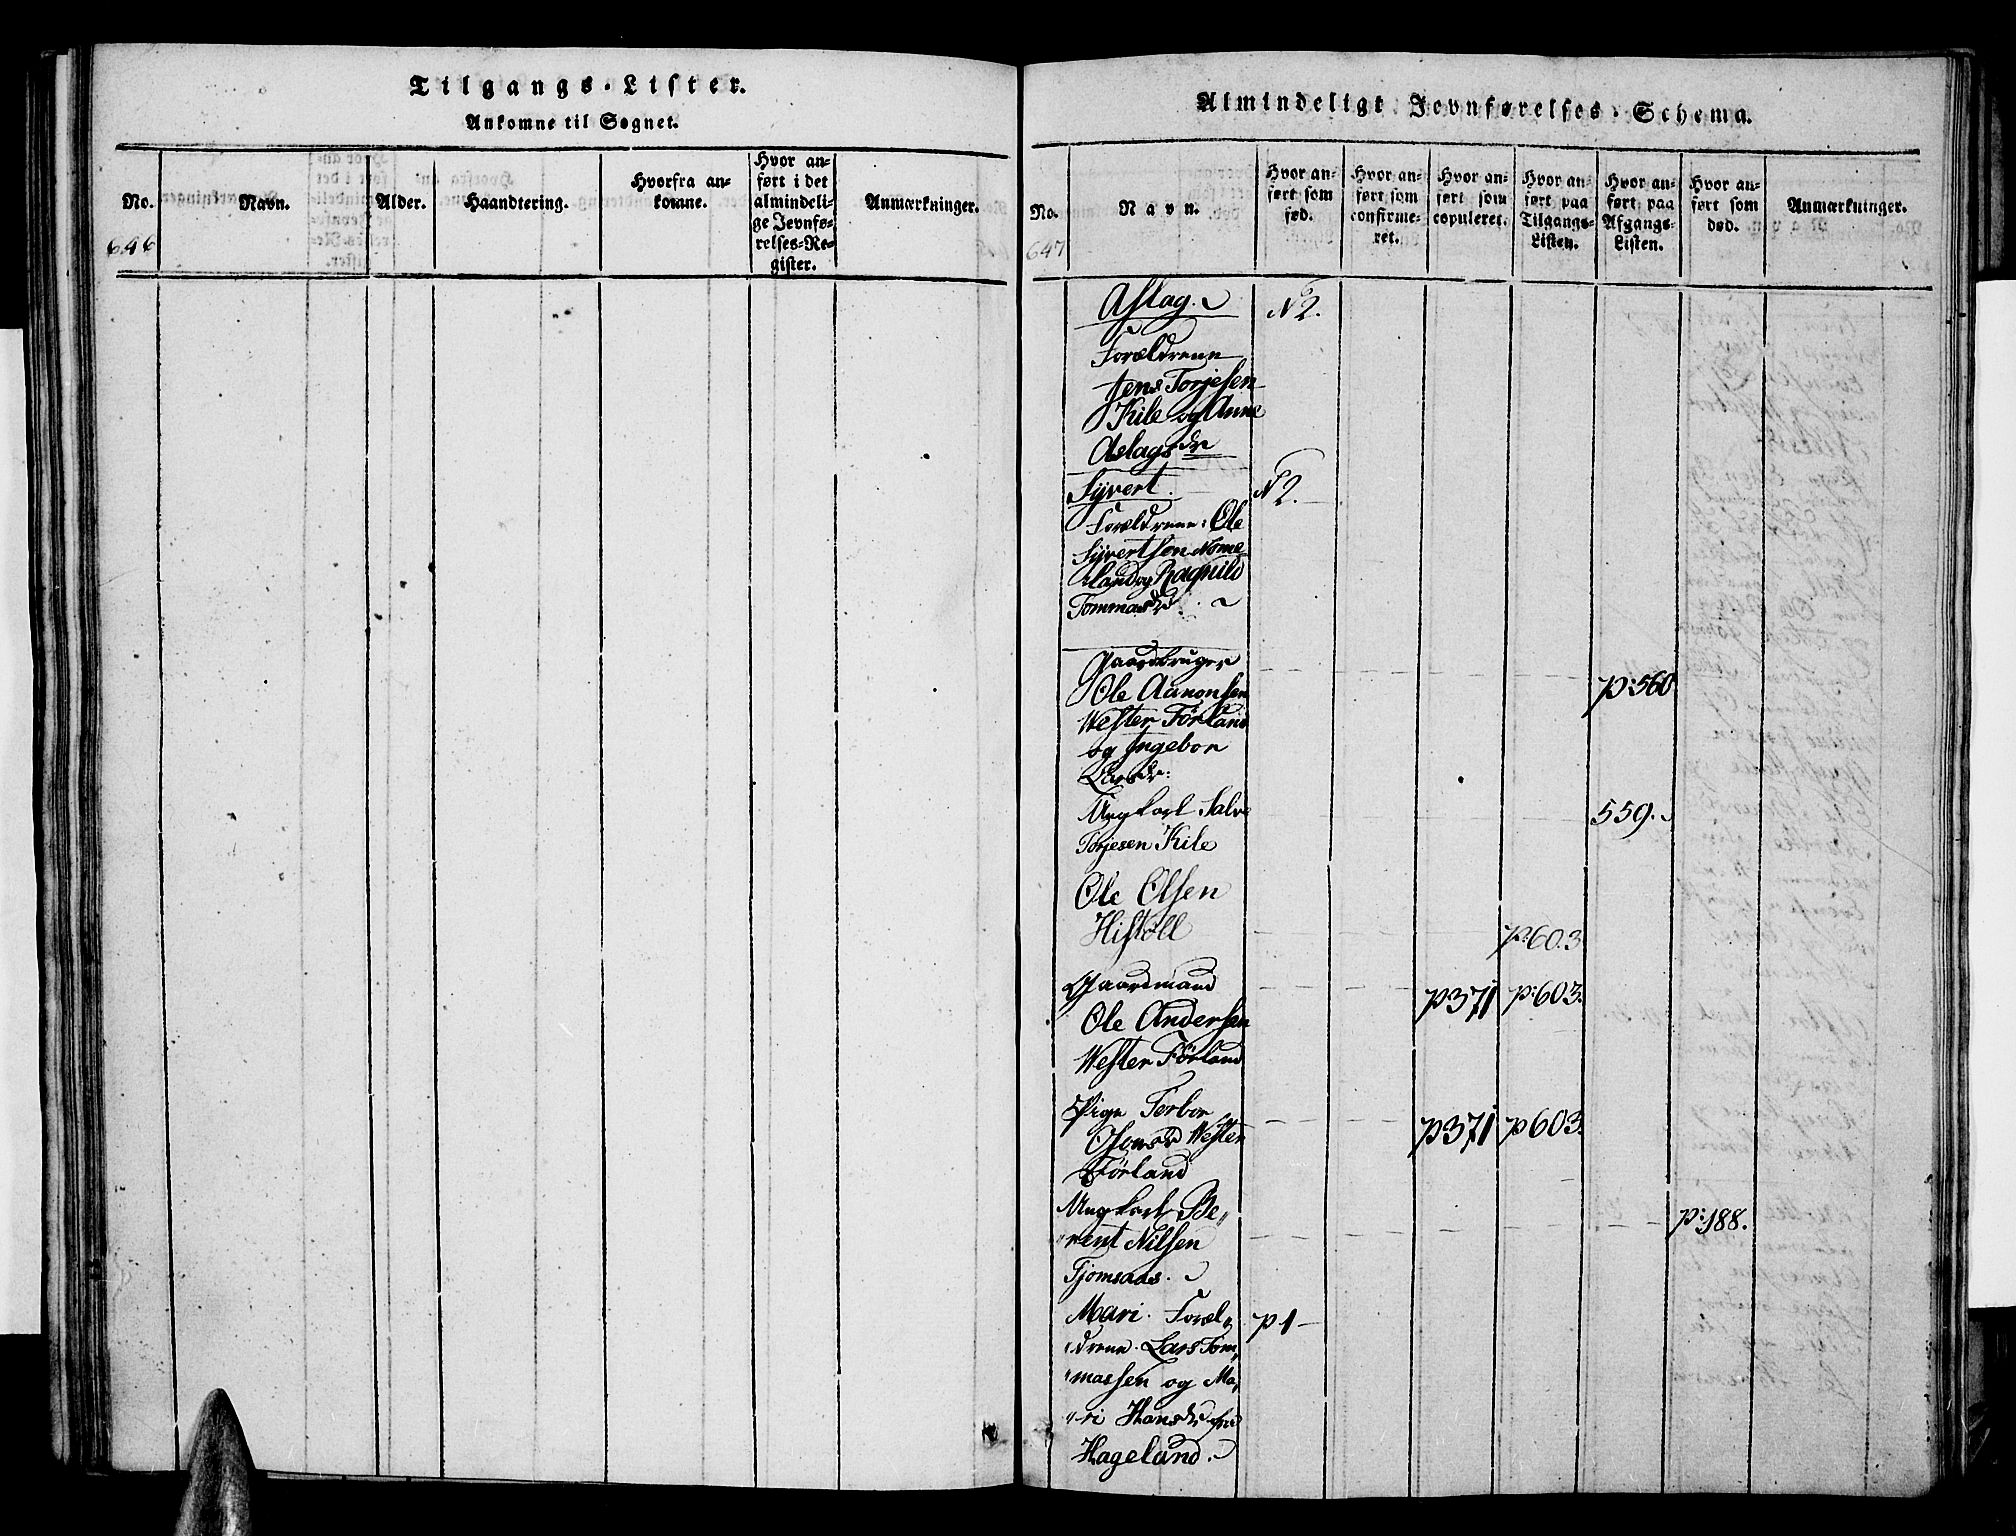 Tilgangs-Lister.
Ankomne til Sognet.
No. Navn. Alder. Haandtering. Hvorfra ankomne. Hvor anført i det almindelige Jevnførelses-Register. Anmærkninger.
646
Almindeligt Jevnførelses-Schema.
No. Navn. Hvor anført som fød. Hvor anført som confirmeret. Hvor anført som copuleret. Hvor anført paa Tilgangs-Listen. Hvor anført paa Afgangs-Listen. Hvor anført som død. Anmærkninger.
647
Aslag. N 2.
Forældrene
Jens Torjesen
Kile og Anne
Aslagsdr
Syvert. N 2.
Forældrene: Ole
Syvertsen Nome
land og Ragnild
Tommasdr.
Gaardbruger
Ole Aanonsen p: 560
Wester Førland
og Ingebor
Larsdr:
Ungkarl Salve 559.
Torjesen Kile
Ole Olsen
Histøll p: 603
Gaardmand p 371 p: 603.
Ole Andersen
Wester Førland
Pige Torbor
Wester p 371 p 603.
Førland
Ungkarl Be„
„rent Nilsen p: 188.
Tjomsaas.
Mari. Foræl„ p 1
„drene. Lars Tom„
„massen og Ma„
„ri Hansdr fra
Hageland.